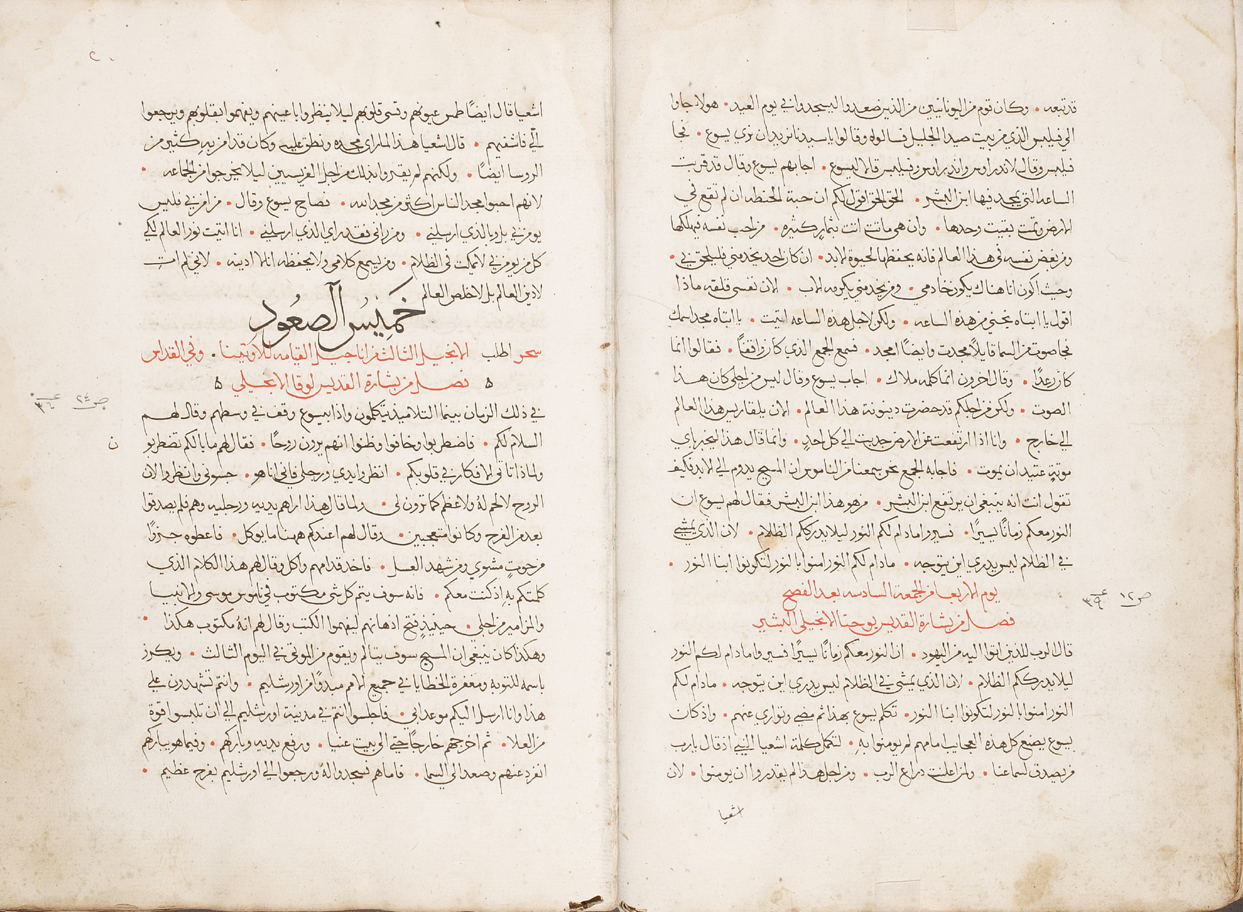 قد تبعه • وكان قوم من اليونانيين من الذين صعدوا ليسجدوا في يوم العيد • هولا جاوا
الي فيلبس الذي من بيت صيدا الجليل فسالوه وقالوا يا سيدنا نريد ان نري يسوع • فجا
فيلبس وقال لاندراوس واندراوس وفيلبس قالا ليسوع • اجابهم يسوع وقال قد قربت
الساعه التي يمجد فيها ابن البشر • الحق الحق اقول لكم ان حبة الحنطه ان لم تقع في
الارض وتمت بقيت وحدها • وان هي ماتت اتت بثمار كثيره • من احب نفسه فيهلكها
ومن يبغض نفسه في هذا العالم فانه يحفظها لحيوة الابد • ان كان احد يخدمني فليلحق بي •
وحيث اكون انا هناك يكون خادمي • ومن يخدمني يكرمه الاب • الان نفسي قلقه ماذا
اقول يا ابتاه نجني من هذه الساعه • ولكن لاجل هذه الساعه اتيت • يا ابتاه مجد اسمك
فجا صوت من السما قايلاً مجدت وايضًا امجد • فسمع الجمع الذي كان واقفًا • فقالوا انما
كان رعدًا • وقال اخرون انما كلمه ملاك • اجاب يسوع وقال ليس من اجلي كان هذا
الصوت • ولكن من اجلكم قد حضرت دينونة هذا العالم • الان يلقا ريس هذا العالم
الي خارج • وانا اذا ارتفعت عن الارض جذبت الي كل احدٍ • وانما قال هذا ليخبر باي
موتةٍ عتيد ان يموت • فاجابه الجمع نحن سمعنا من الناموس ان المسيح يدوم الي الابد فكيف
تقول انت انه ينبغي ان يرتفع ابن البشر • من هو هذا ابن البشر فقال لهم يسوع ان
النور معكم زمانًا يسيرًا • فسيروا ما دام لكم النور ليلا يدرككم الظلام • لان الذي يمشي
في الظلام ليس يدري اين يتوجه • ما دام لكم النور امنوا بالنور لتكونوا ابنا النور •
يوم الاربعا من الجمعه السادسه بعد الفصح
ص ١٢ عـ ٣٩
فصل من بشارة القديس يوحنا الانجيلي البشير
قال الرب للذين اتوا اليه من اليهود • ان النور معكم زمانًا يسيرًا فسيروا ما دام لكم النور
ليلا يدرككم الظلام • لان الذي يمشي في الظلام ليس يدري اين يتوجه • ما دام لكم
النور امنوا بالنور لتكونوا ابنا النور • تكلم يسوع بهذا ثم مضي وتواري عنهم • واذ كان
يسوع يصنع كل هذه العجايب امامهم لم يومنوا بهِ • لتكمل كلمة اشعيا النبي اذ قال يا رب
من يصدق لسماعنا • ولمن اعلنت ذراع الرب • ومن اجل هذا لم يقدروا ان يومنوا • لان
اشعيا
اشعيا قال ايضًا طمس عيونهم وقسى قلوبهم ليلا ينظروا باعينهم ويفهموا بقلوبهم ويرجعوا
الّي فاشفيهم • قال اشعيا هذا لما راي مجده ونطق عليه وكان قد امن بهِ كثير من
الروسا ايضًا • ولكنهم لم يقروا بذلك من اجل الفريسيين ليلا يخرجوا من الجماعه •
لانهم احبوا مجد الناس اكثر من مجد الله • فصاح يسوع وقال • من امن بي فليس
يومن بي بل بالذي ارسلني • ومن راني فقد راي الذي ارسلني • انا اتيت نور العالم لكي
كل من يومن بي لا يمكث في الظلام • ومن يسمع كلامي ولا يحفظه انا ما ادينه • لاني لم ات
لادين العالم بل لاخلص العالم
خَمِيْسُ الصعُودِ
سحر الطلب الانجيل الثالث من اناجيل القيامه للاوثينا • وفي القداس
فصل من بشارة القديس لوقا الانجيلي
ص ٢٤ عـ ٣٦
في ذلك الزمان بينما التلاميذ يتكلمون واذا بيسوع وقف في وسطهم وقال لهم
السلام لكم • فاضطربوا وخافوا وظنوا انهم يرون روحًا • فقال لهم ما بالكم تضطربو
ن
ولماذا تاتي الافكار في قلوبكم • انظروا يدي ورجلي فاني انا هو • جسوني وانظروا لان
الروح لا لحم لهُ ولا عظم كما ترون لي • ولما قال هذا اراهم يديه ورجليه وهم لم يصدقوا
بعد من الفرح وكانوا متعجبين • وقال لهم اعندكم ههنا ما يوكل • فاعطوه جزوًا
من حوتٍ مشوي ومن شهد العسل • فاخذ قدامهم واكل وقال لهم هذا الكلام الذي
كلمتكم بهِ اذ كنت معكم • فانه سوف يتم كل شي مكتوب في ناموس موسى والانبيا
والمزامير من اجلي • حينيذٍ فتح اذهانهم ليفهموا الكتب وقال لهم انهُ مكتوب هكذا •
وهكذا كان ينبغي ان المسيح سوف يتالم ويقوم من الموتي في اليوم الثالث • ويكرز
باسمه للتوبة ومغفرة الخطايا في جميع الامم مبدوًا من اورشليم • وانتم تشهدون علي
هذا وانا ارسل اليكم موعد ابي • فاجلسوا انتم في مدينة اورشليم الي ان تلبسوا قوة
من العلا • ثم اخرجهم خارجًا حتي الي بيت عنيا • ورفع يديه وباركهم • وفيما هو يباركهم
انفرد عنهم وصعد الي السما • فاما هم فسجدوا له ورجعوا الي اورشليم بفرح عظيم •